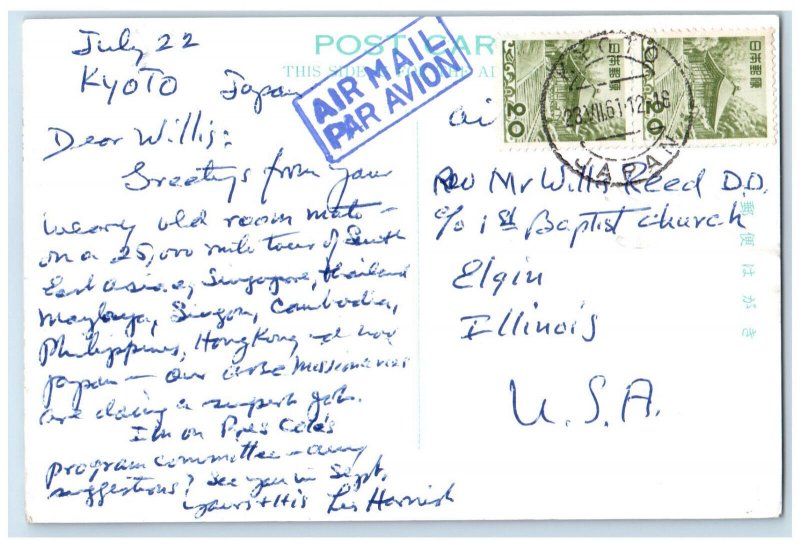 July 22
Kyoto Japan
Dear Willis:
Greetings from your
weary old room mate –
on a 25,000 mile tour of South
East Asia, Singapore, Thailand
Cambodia,
Philippines, Hong Kong and now
Japan – our missionaries
are doing a superb job.
I'm on Pres
program committee – any
suggestions? See you in Sept.
Yours + His Les Harnish
POST CARD
THIS SIDE
AIR MAIL
PAR AVION
日本郵便
20
日本郵便
20
23.VII.61.12
JAPAN
Rev Mr Willis Reed D.D.
c/o 1st Baptist Church
Elgin
Illinois
U.S.A.
郵便はがき